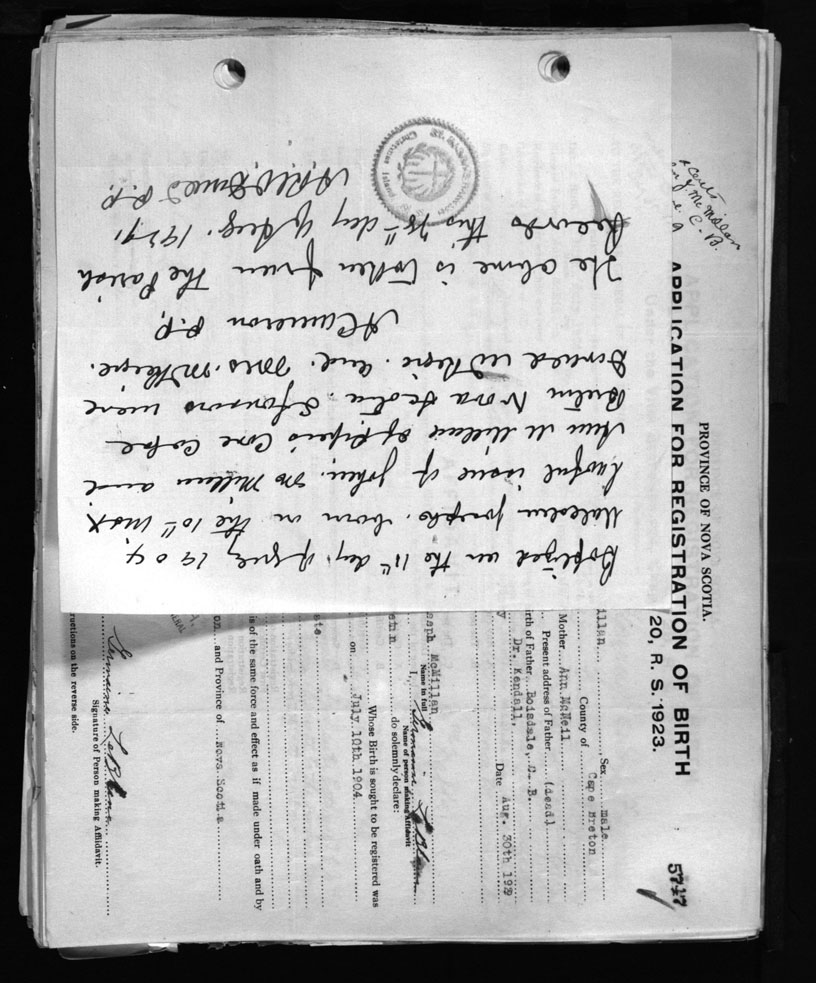 Baptized on the 11th day of July 1904
Malcolm Joseph, born on the 10th inst.
lawful issue of John McMillan and
Ann McNeil of Piper's Cove Cape
Breton Nova Scotia. Sponsors were
Donald and Mrs.
A Cameron P.P.
The above is taken from the Parish
Records this day of Aug. 1929.
P.P.
McMillan
C. B.
PROVINCE OF NOVA SCOTIA.
APPLICATION FOR REGISTRATION OF BIRTH
20, R. S. 1923.
5717
illan Sex male
County of Cape Breton
Mother Ann McNeil
Present address of Father (dead)
irth of Father Boisdale, C. B.
Dr. Kendall,
Date Aug. 30th 192
oseph McMillan
Name in full
I, Germaine LeBlanc
Name of person making Affidavit
do solemnly declare:
Whose Birth is sought to be registered was
on July 10th 1904
is of the same force and effect as if made under oath and by
on and Province of Nova Scotia
Germaine LeBlanc
Signature of Person making Affidavit.
ructions on the reverse side.